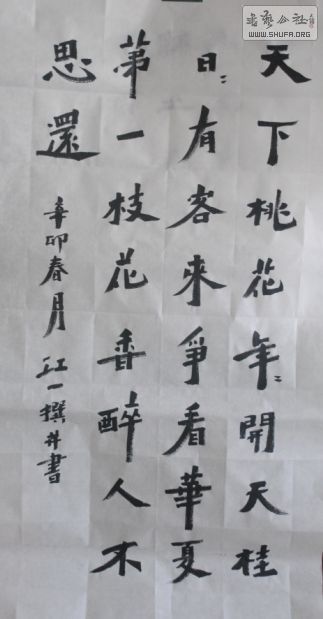 書藝公社
WWW.SHUFA.ORG
天下桃花年〻開天桂
日〻有客來爭看華夏
第一枝花香醉人不
思還
辛卯春月江一撰并書